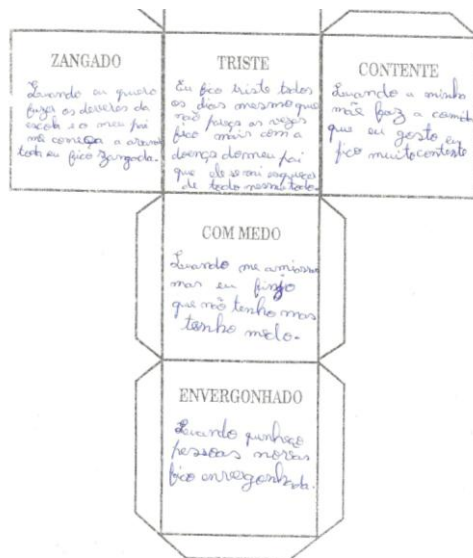 ZANGADO
Quando eu quero
fazer os deveres da
escola e o meu pai
me começa a
toda eu fico zangada.
TRISTE
Eu fico triste todos
os dias mesmo que
não pareça as vezes
fico mais com a
doença do meu pai
que ele
de tudo mesmo tudo.
CONTENTE
Quando a minha
mãe faz a comida
que eu gosto eu
fico muito contente
COM MEDO
Quando me
mas eu finjo
que não tenho mas
tenho medo.
ENVERGONHADO
Quando
pessoas novas
fico envergonhada.